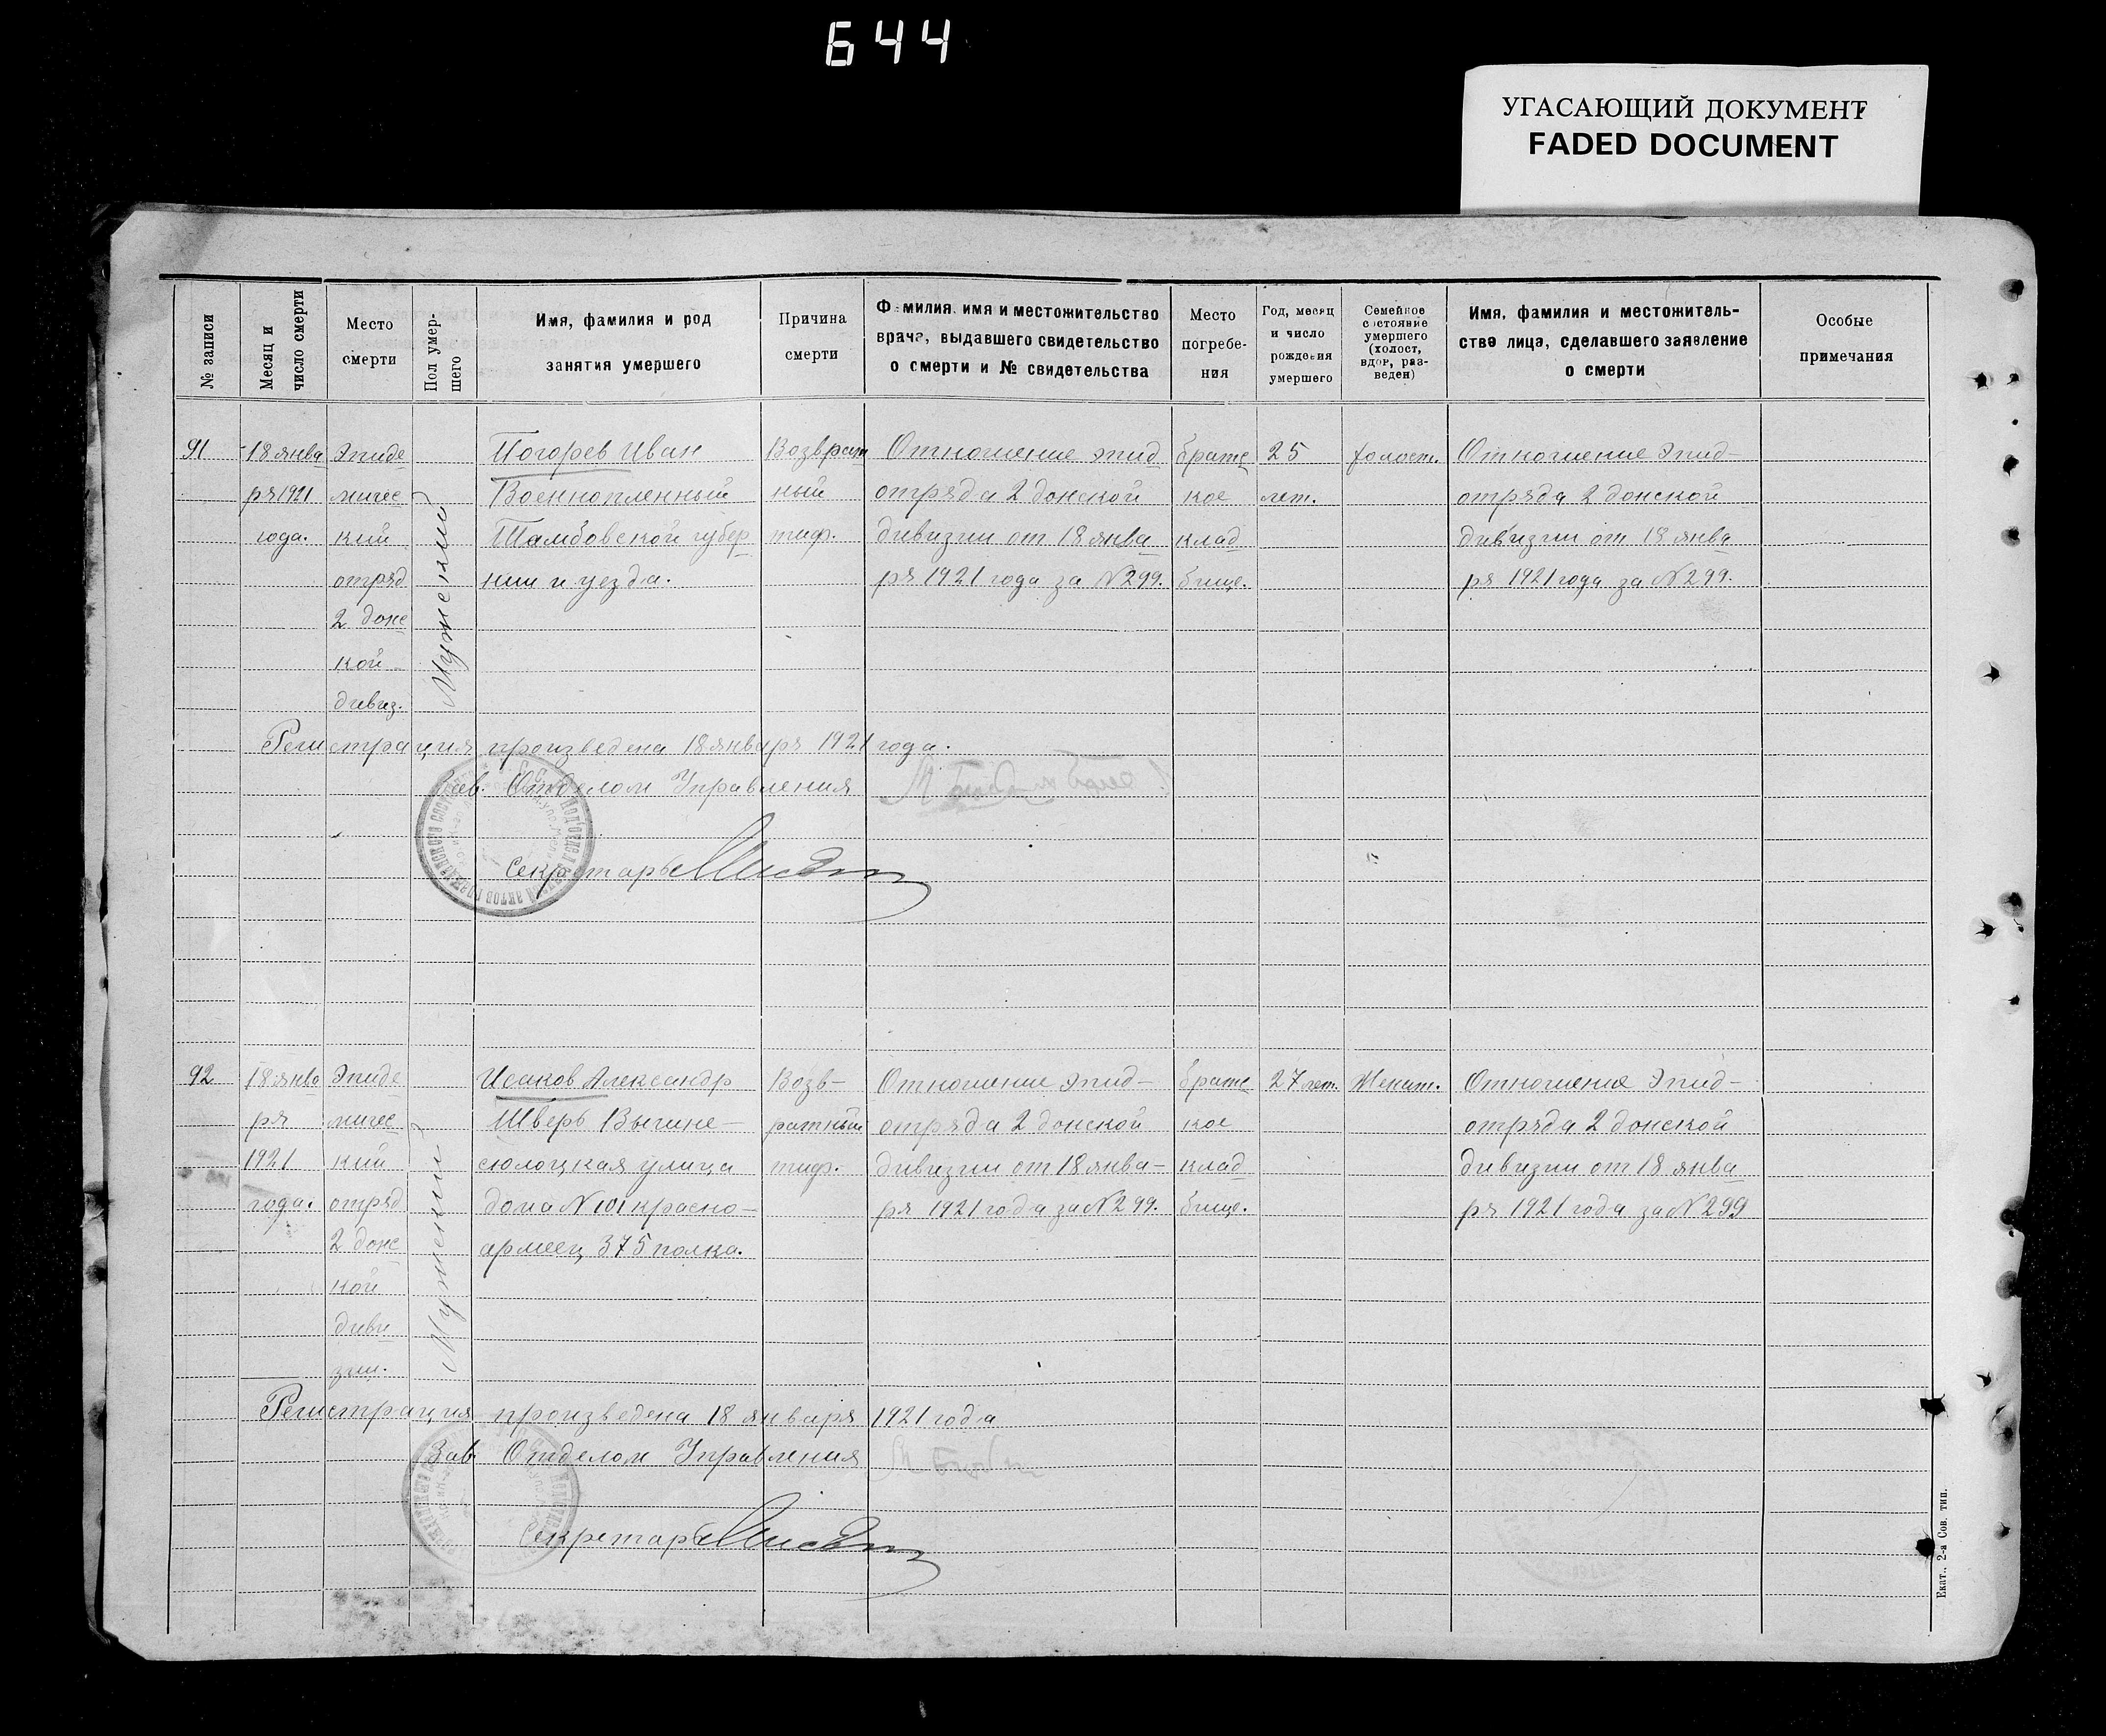 644
УГАСАЮЩИЙ ДОКУМЕНТ
FADED DOCUMENT
№ записи
Месяц и
число смерти
Место
смерти
Пол умер-
шего
Имя, фамилия и род
занятия умершего
Причина
смерти
Фамилия, имя и местожительство
врача, выдавшего свидетельство
о смерти и № свидетельства
Место
погребе-
ния
Год, месяц
и число
рождения
умершего
Семейное
состояние
умершего
(холост,
вдов, раз-
веден)
Имя, фамилия и местожитель-
ство лица, сделавшего заявление
о смерти
Особые
примечания
91
18 янва
ря 1921
года.
Эпиде
мичес
кий
отряд
2 донс
кой
дивиз.
Мужский
Погорев Иван
Военнопленный
Тамбовской губер
нии и уезда.
Возврат
ный
тиф.
Отношение эпид
отряда 2 донской
дивизии от 18 янва
ря 1921 года за №299.
братс
кое
клад
бище.
25
лет.
холост.
Отношение Эпид-
отряда 2 донской
дивизии от 18 янва
ря 1921 года за №299.
Регистрация произведена 18 января 1921 года.
Зав. Отделом Управления
Секретарь
92
18 янва
ря
1921
года.
Эпиде
мичес
кий
отряд
2 донс
кой
диви
зии.
Мужский
Исаков Александр
Тверь
улица
дома №101 красно-
армеец 375 полка.
Возв-
ратный
тиф.
Отношение Эпид-
отряда 2 донской
дивизии от 18 янва-
ря 1921 года за №299.
братс
кое
клад
бище.
27 лет.
Женат.
Отношения Эпид-
отряда 2 донской
дивизии от 18 янва
ря 1921 года за №299
Регистрация произведена 18 января 1921 года
Зав Отделом Управления
Секретарь
Екат., 2-а Сов. тип.